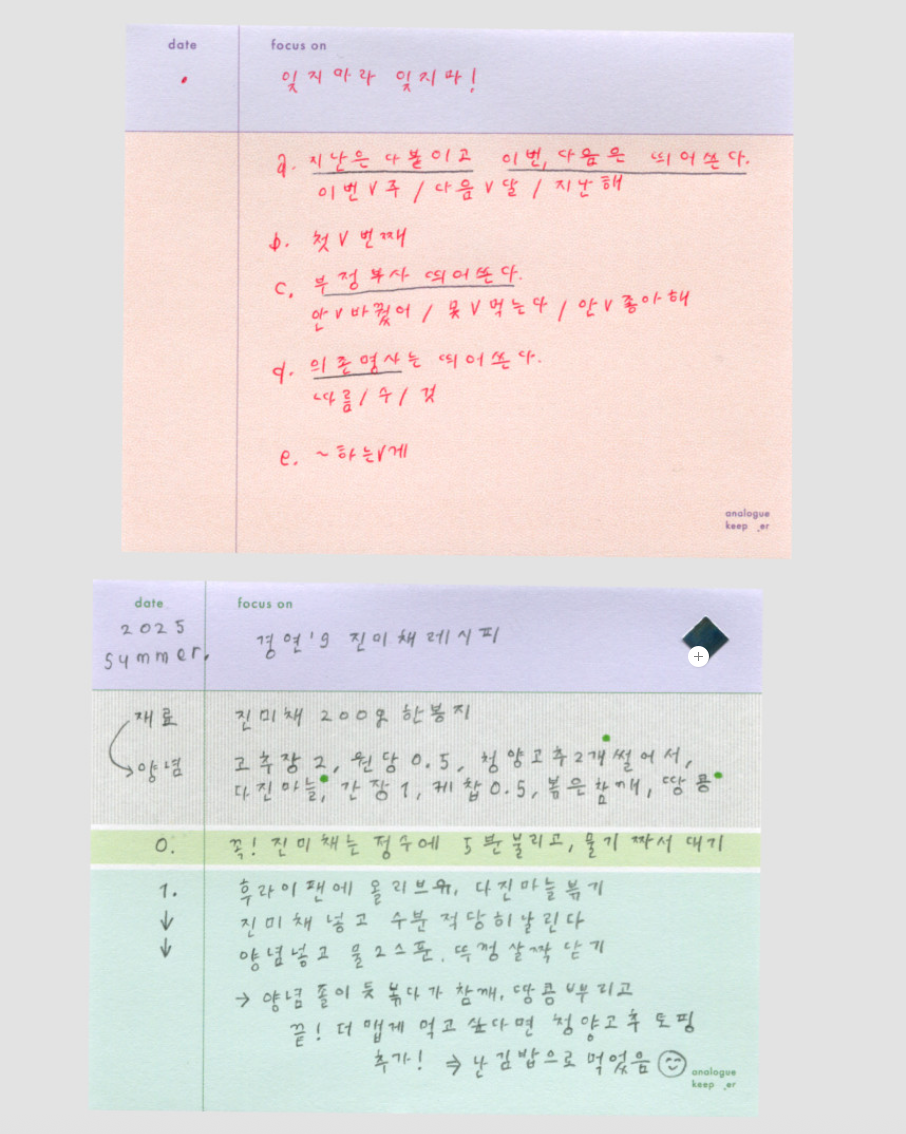 date
focus on
잊지마라 잊지마!
a. 지난은 다붙이고 이번, 다음은 띄어쓴다.
이번∨주 / 다음∨달 / 지난해
b. 첫∨번째
c. 부정부사 띄어쓴다.
안∨바꿨어 / 못∨먹는다 / 안∨좋아해
d. 의존명사는 띄어쓴다.
따름 / 수 / 것
e. ~하는∨게
analogue
keep_er
date
focus on
2025
summer.
경연's 진미채레시피
재료 진미채 200g 한봉지
양념 고추장2, 원당0.5, 청양고추2개썰어서,
다진마늘, 간장1, 케찹0.5, 볶은참깨, 땅콩
0. 꼭! 진미채는 정수에 5분불리고, 물기 짜서 대기
1. 후라이팬에 올리브유, 다진마늘볶기
↓ 진미채 넣고 수분 적당히날린다
↓ 양념넣고 물2스푼. 뚜껑살짝 닫기
→ 양념 졸이듯 볶다가 참깨, 땅콩 뿌리고
끝! 더 맵게 먹고싶다면 청양고추 토핑
추가! → 난김밥으로 먹었음
analogue
keep_er